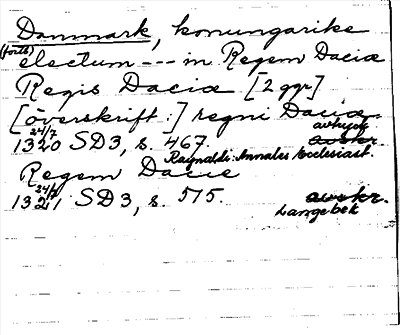 Danmark, konungarike
(forts) electum --- in Regem Daciæ
Regis Daciæ [2 ggr]
[överskrift:] regni Daciæ
1320 24/7 SD3, s. 467. avtryck avskr.
Raynaldi: Annales Ecclesiast.
Regem Dacie
1321 24/4 SD3, s. 515. avskr.
Langebek